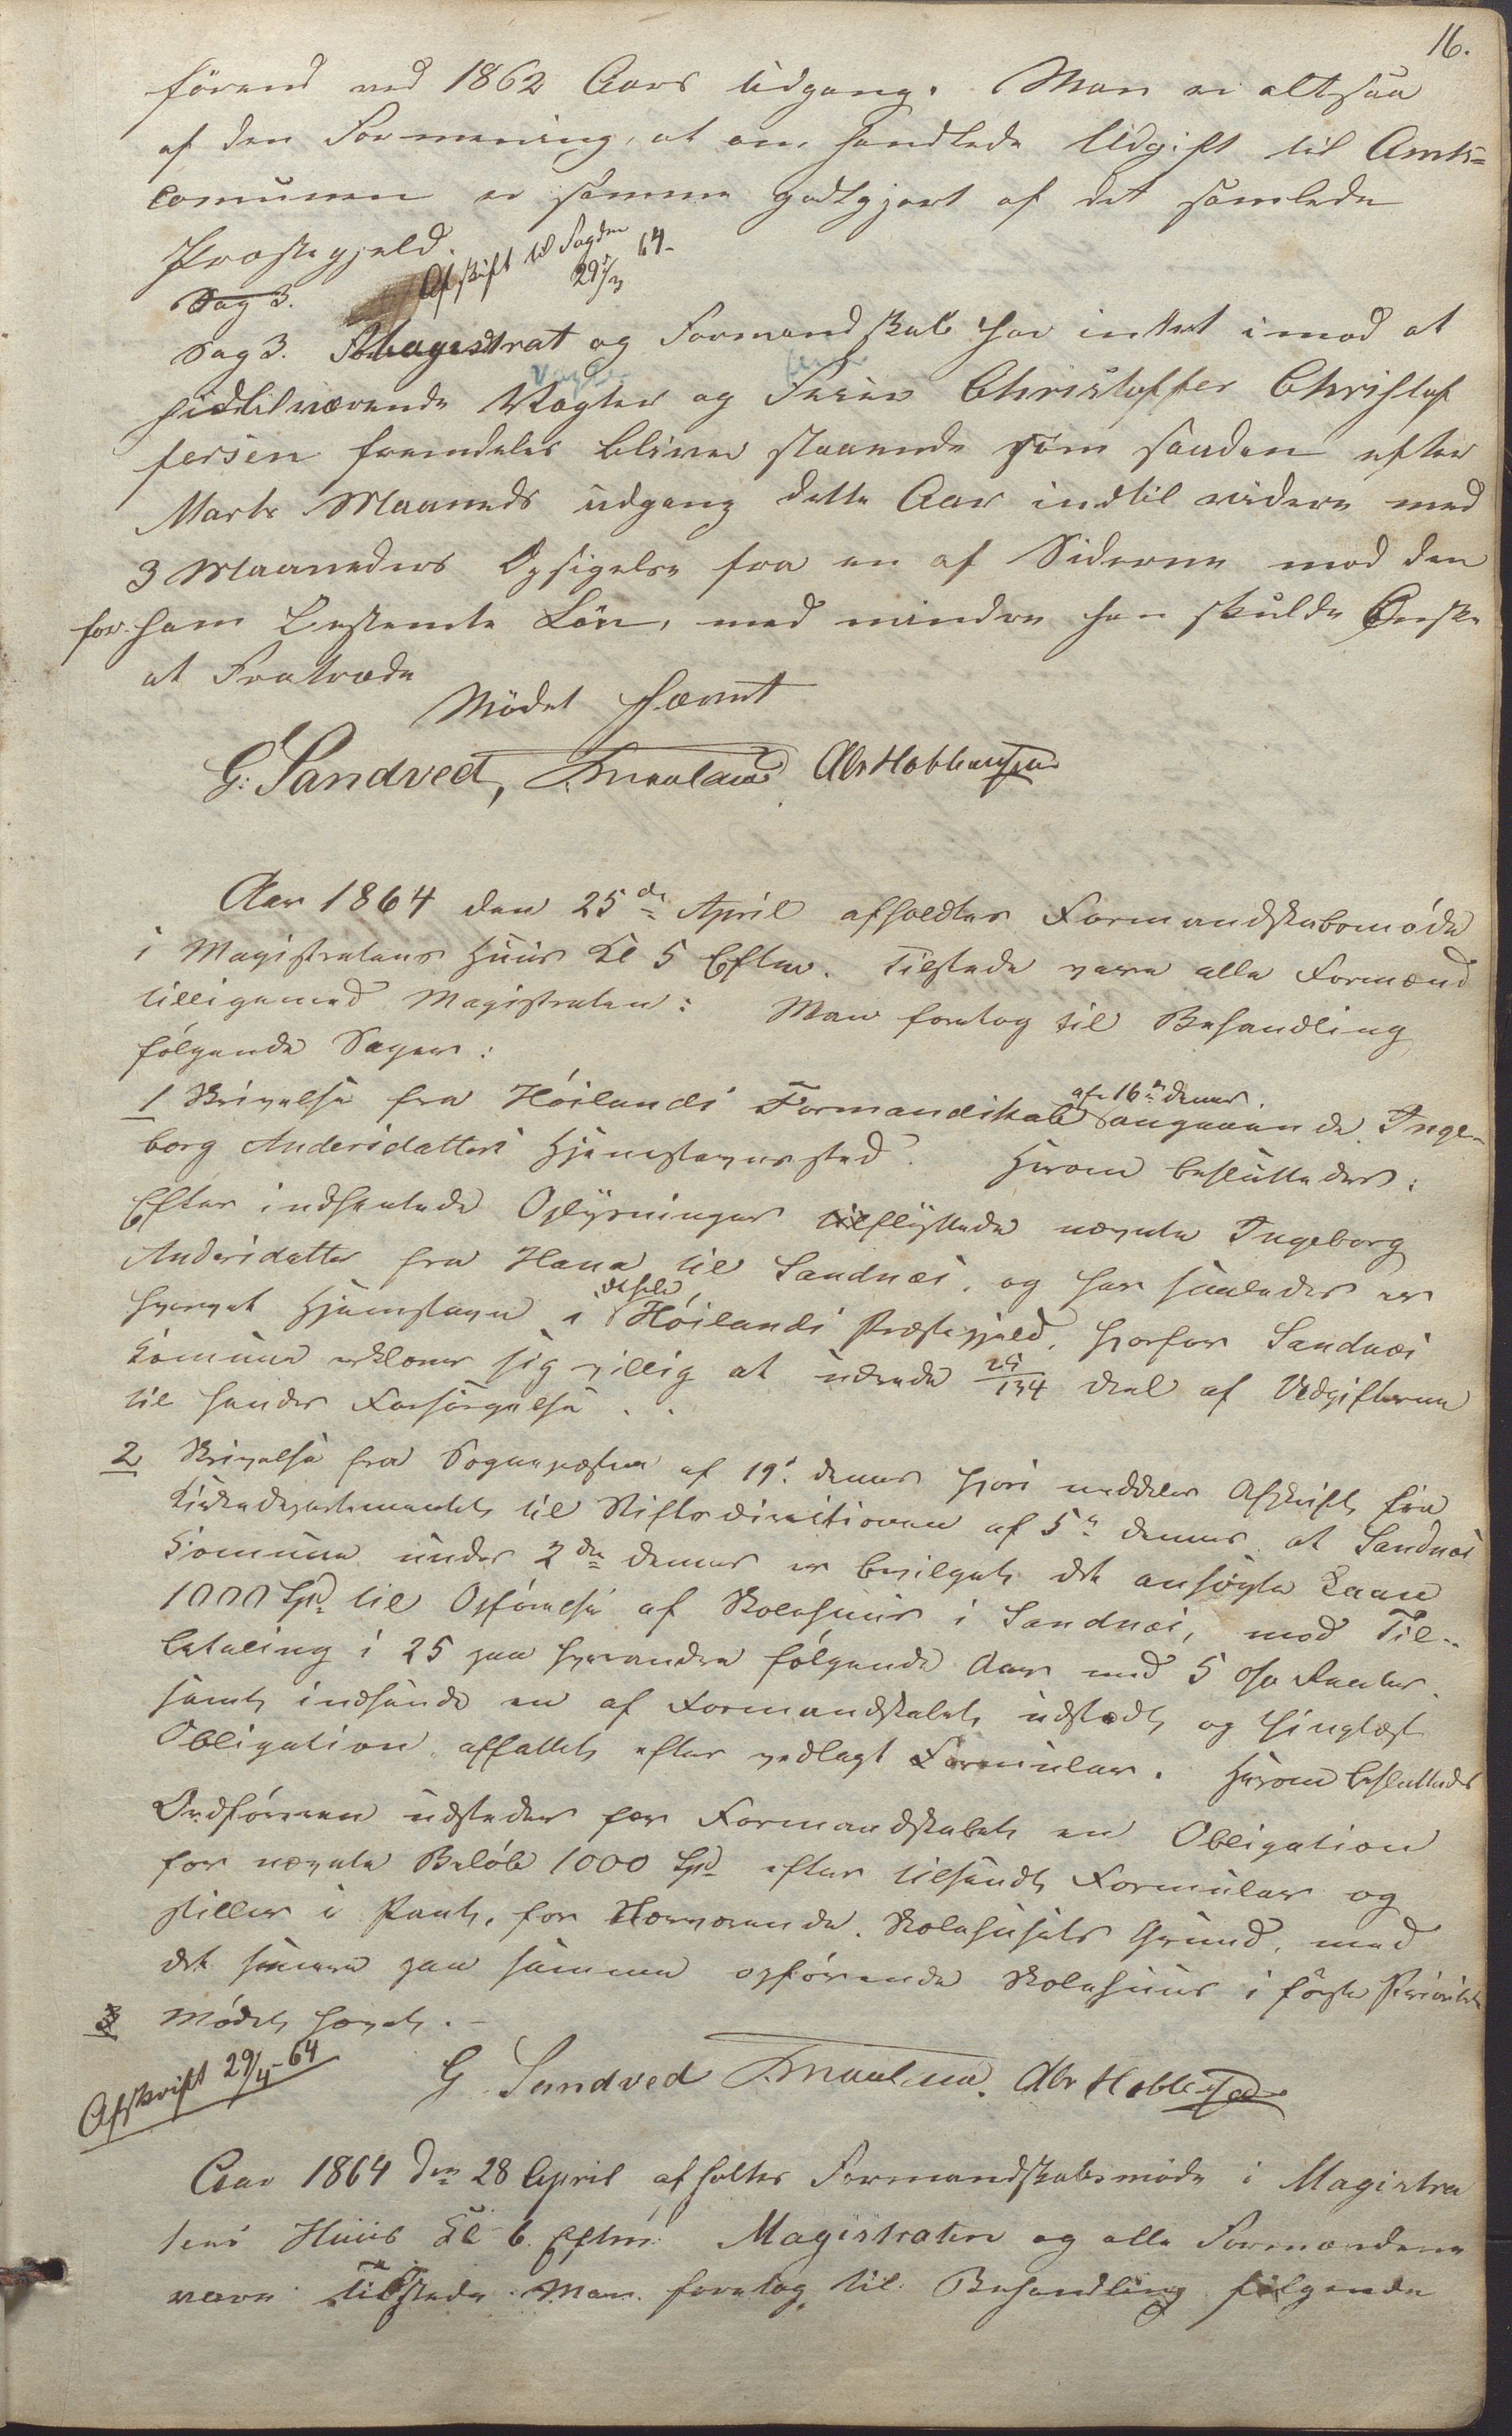 16.
förend ved 1862 Aars Udgang. Man er altsaa
af den Formening, at om handlede Udgift til Amts=
comunen er somme godtgjort af det samlede
Præstegjeld.
Afskrift til Fogden 29/3 64-
Sag 3.
Sag 3. Magistrat og Formandskab har intet imod at
hidtilværende Vægter og Christoffer Christof
fersen fremdeles bliver staaende som saadan efter
Marts Maaneds udgang dette Aar indtil videre med
3 Maaneders Opsigelse fra en af Siderne mod den
for ham Bestemte Lön, med mindre han skulde Önske
at Fratræde
Mödet hævet
G: Sandved, Abr Habbenson
Aar 1864 den 25de April afholdtes Formandskabsmöde
i Magistratens Huus Kl 5 Efterm. Tilstede vare alle Formænd
tilligemed Magistraten: Man foretog til Behandling
fölgende Sager:
1 Skrivelse fra Höilands Formandskab af 16de dennes angaaende Inge-
borg Andersdatters Hjemstavnssted. Herom besluttedes:
Efter indhentede Oplysninger tilflyttede nævnte Ingeborg
Andersdatter fra Hana til Sandnæs, og har saaledes er
hvervet Hjemstavn i det hele Höilands Præstegjeld, hvorfor Sandnæs
Komune erklærer sig villig at udrede 25/134 deel af Udgifterne
til hendes Forsörgelse . .
2 Skrivelse fra Sognepresten af 19de dennes hvori meddeles Afskrift fra
Kirkedepartementet til Stiftsdirectionen af 5te dennes at Sandnæs
Komune under 2den dennes er bevilget det ansögte Laan
1000 Spd til Opförelse af Skolehuus i Sandnæs, mod Til-
betaling i 25 paa hverandre fölgende Aar med 5 o/o Renter.
samt indsende en af Formandskabet udstedt og thinglæst
Obligation affattet efter vedlagt Formular. Herom besluttedes
Ordföreren udsteder for Formandskabet en Obligation
for nævnte Belöb 1000 Spd efter tilsendt Formular og
stiller i Pant, for Nærværende Skolehusets Grund, med
det senere paa samme opförende Skolehuus i förste Prioritet
3 Mödet hævet. -
Afskrift 29/4-64
G Sandved Abr Habbenson
Aar 1864 den 28 April afholtes Formandskabsmöde i Magistra
tens Huus Kl 6 Efterm: Magistraten og alle Formændene
vare tilstede. Man foretog til Behandling fölgende